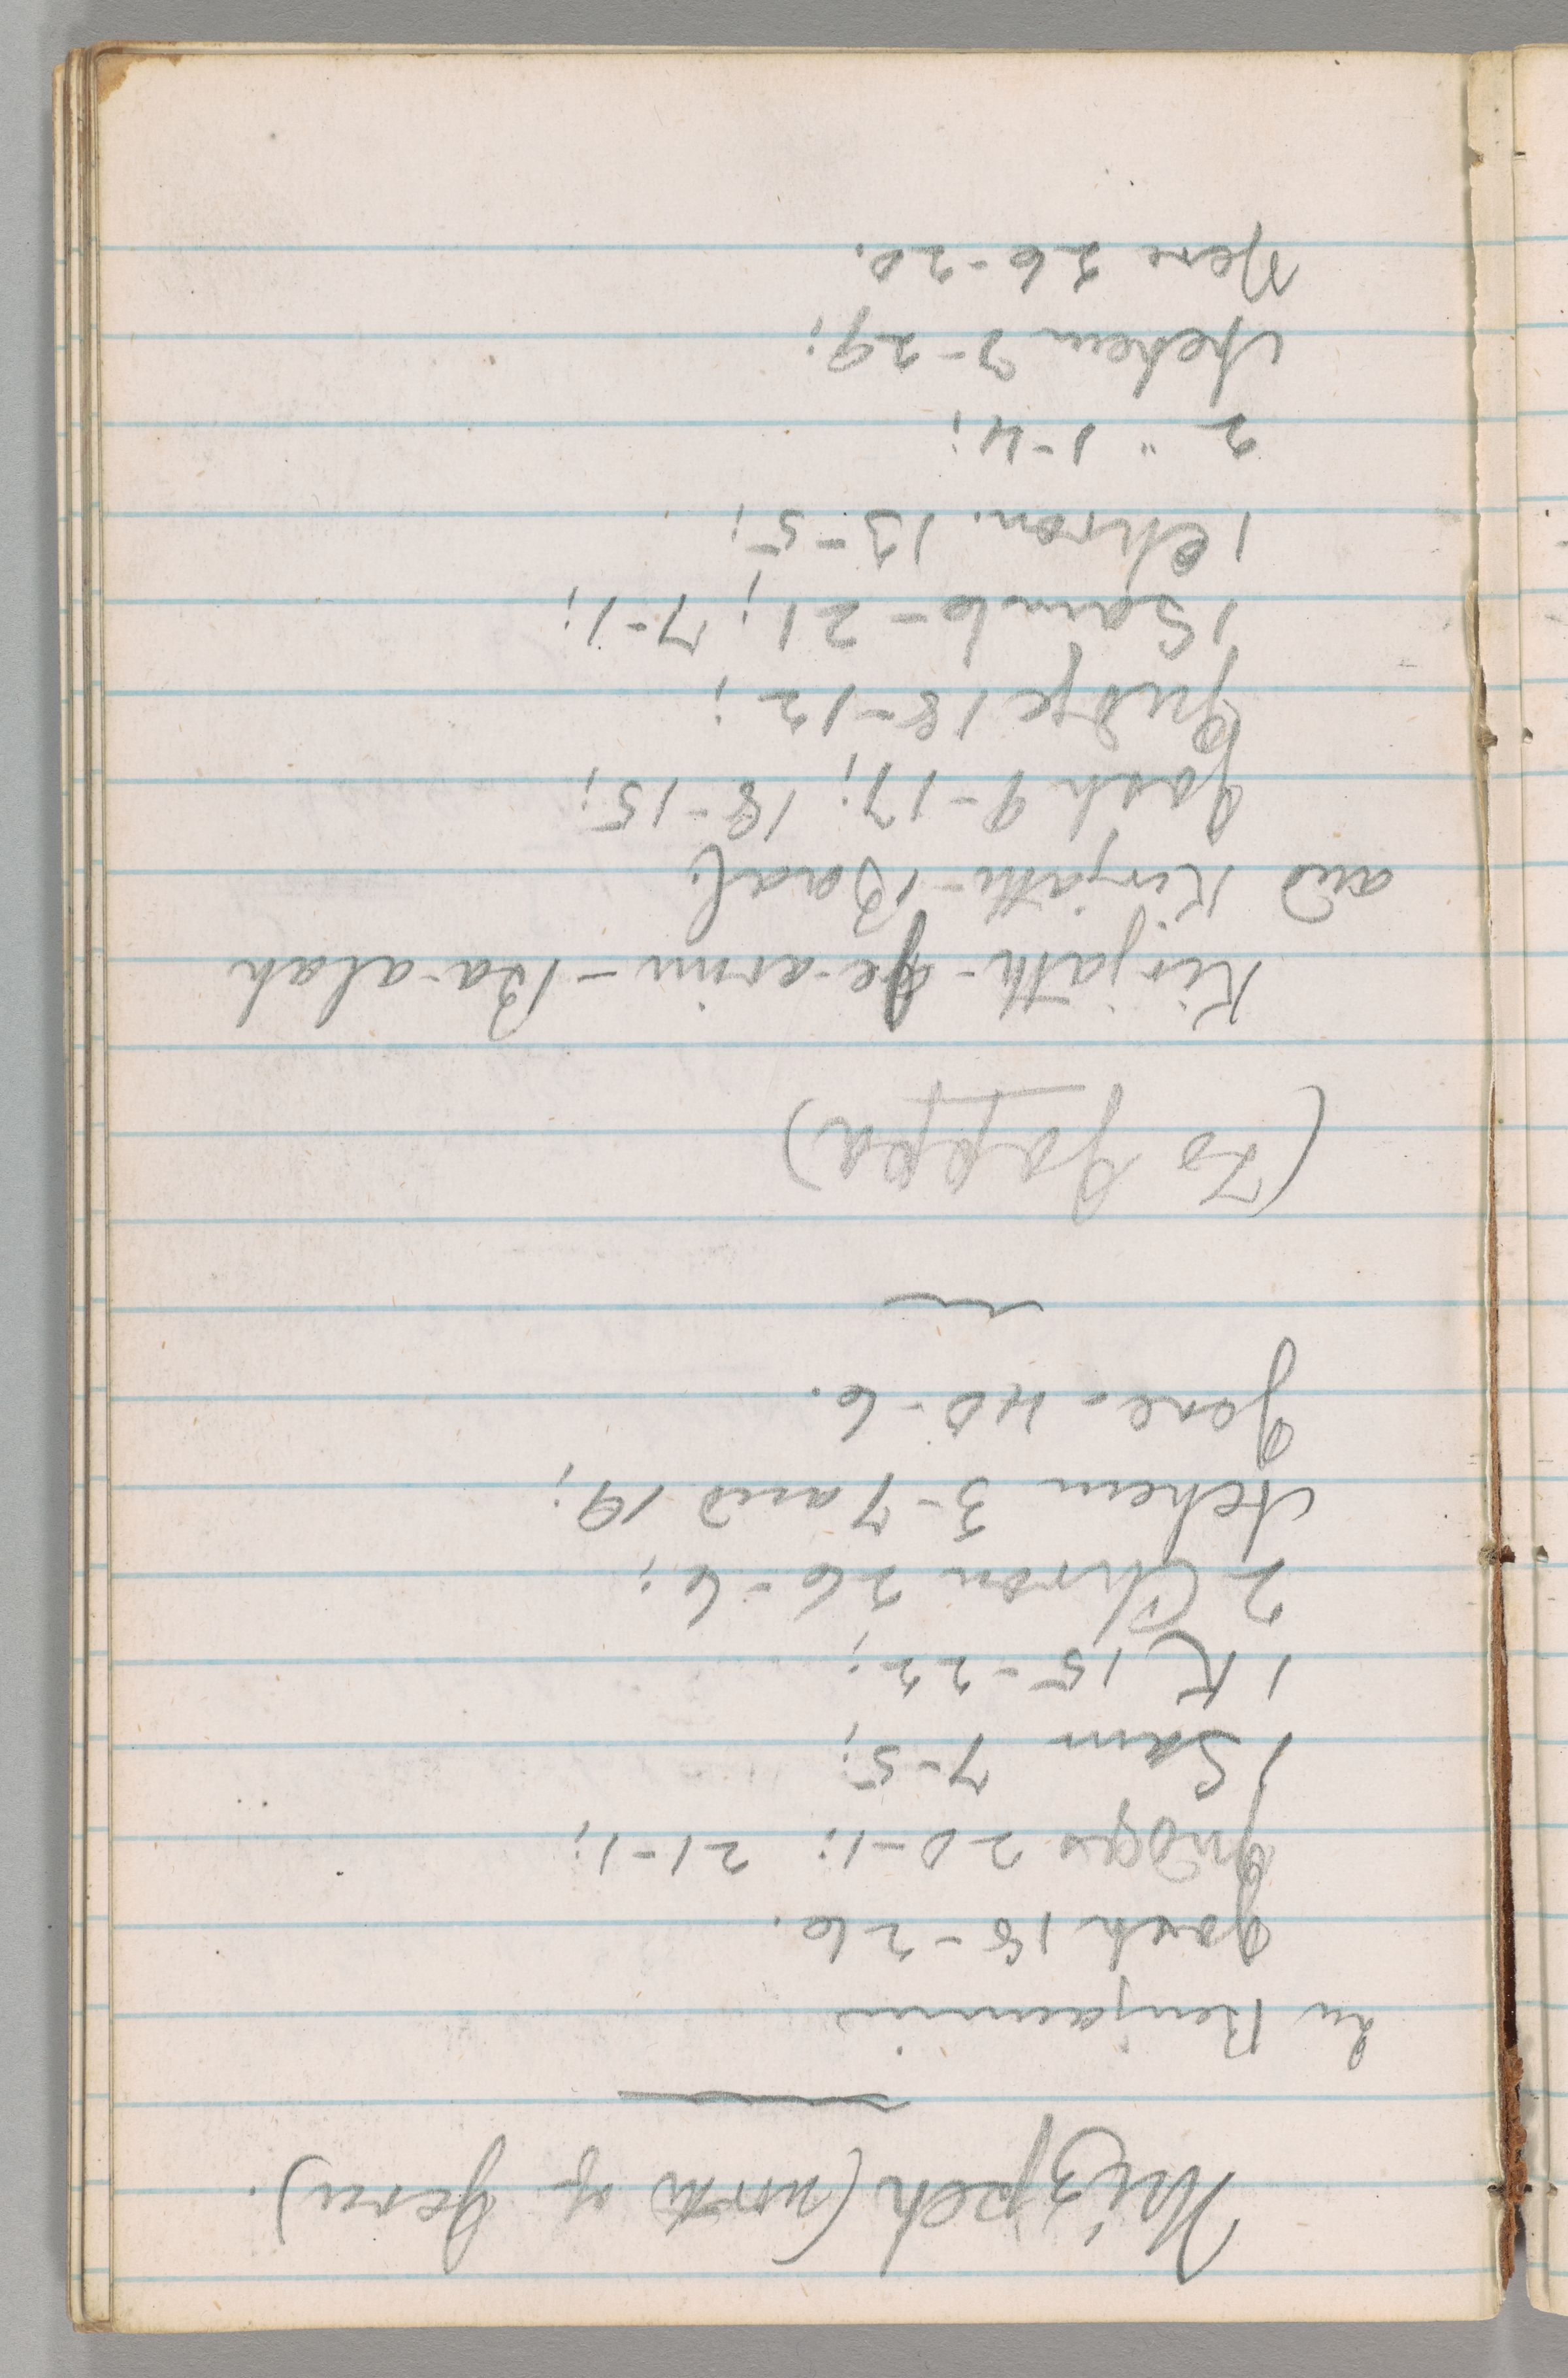 Mizpeh (north of Jeru).
In Benjamin
Josh 18-26.
Judges 20-1; 21-1;
1 Sam 7-5;
1 K 15-22;
2 Chron 26-6;
Nehem 3-7 and 19;
Jere - 40-6.
(To Joppa)
Kirjath-Je-arim - Ba-alah
and Kirjath-Baal.
Josh 9-17; 18-15;
Judge 18-12;
1 Sam 6-21; 7-1;
1 Chron. 13-5;
2 " 1-4;
Nehem 7-29;
Jere 26-20.